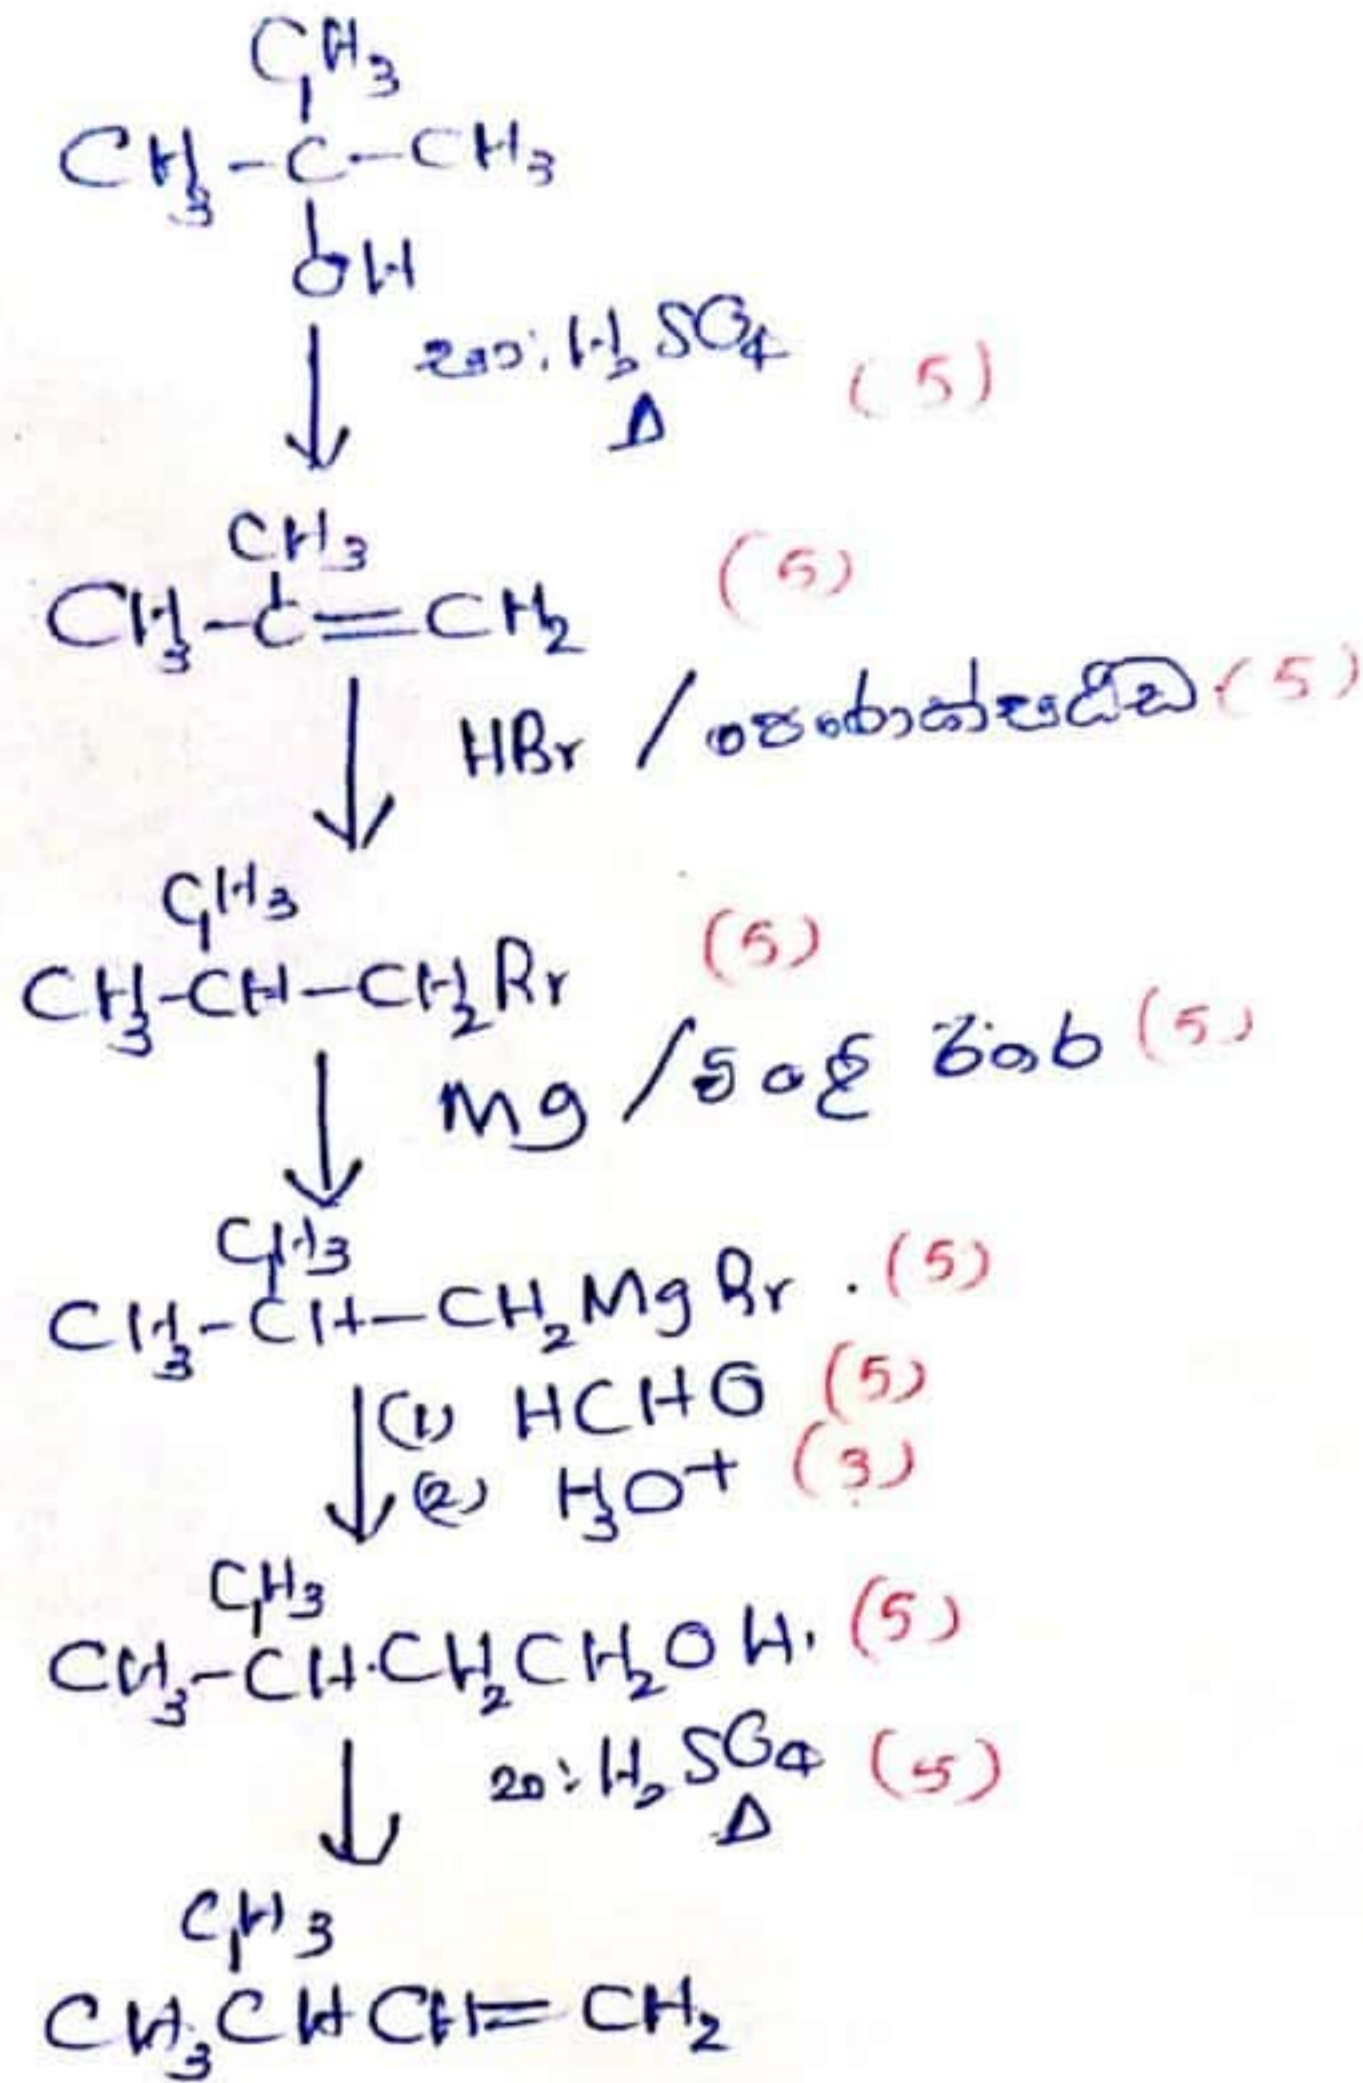 CH3
CH3-C-CH3
OH
සාන්ද්‍ර H2SO4 (5)
Δ
CH3
CH3-C=CH2 (5)
HBr / පෙරොක්සයිඩ (5)
CH3
CH3-CH-CH2Br (5)
Mg / වියළි ඊතර (5)
CH3
CH3-CH-CH2MgBr . (5)
(1) HCHO (5)
(2) H3O+ (3)
CH3
CH3-CH.CH2CH2OH. (5)
H2SO4 (5)
Δ
CH3
CH3CHCH=CH2